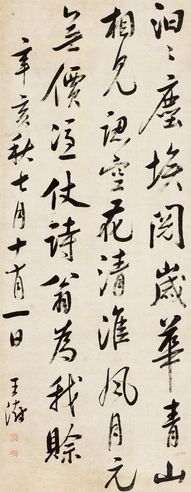 汩汩塵埃閱歲華青山
相見認空花清淮風月元
無價還仗詩翁為我賒
辛亥秋七月十有一日
王澍